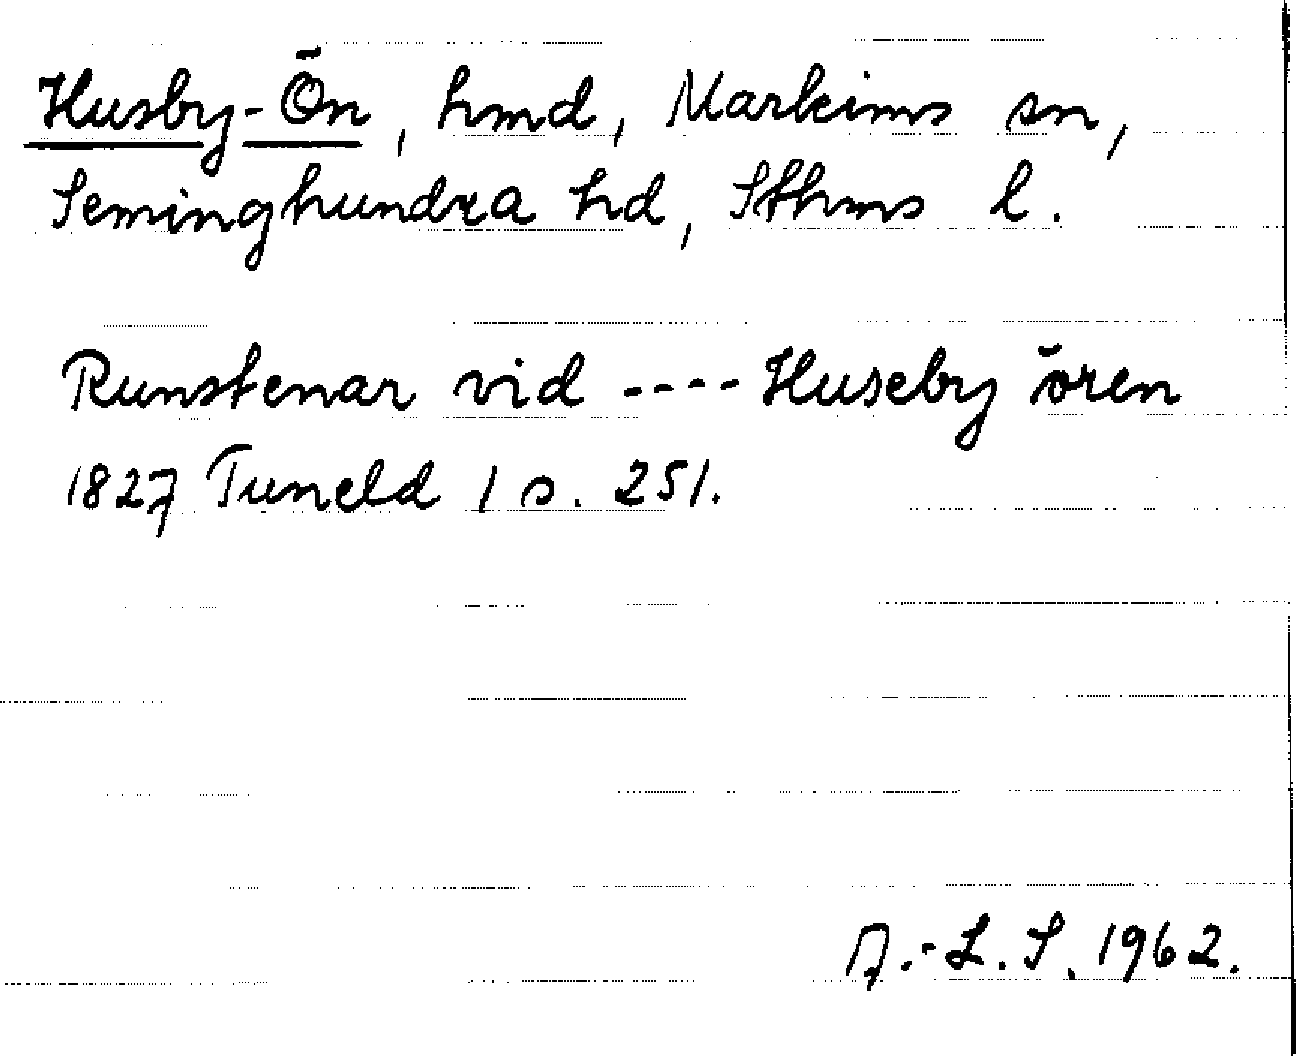 Husby-Ön, hmd, Markims sn,
Seminghundra hd, Sthms l.
Runstenar vid ---- Huseby ören
1827 Tuneld 1 s. 251.
A.-L. S. 1962.